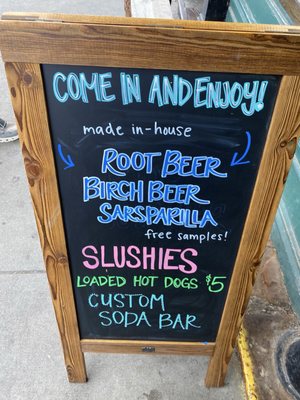 COME IN AND ENJOY!
made in-house
ROOT BEER
BIRCH BEER
SARSPARILLA
free samples!
SLUSHIES
LOADED HOT DOGS $5
CUSTOM
SODA BAR